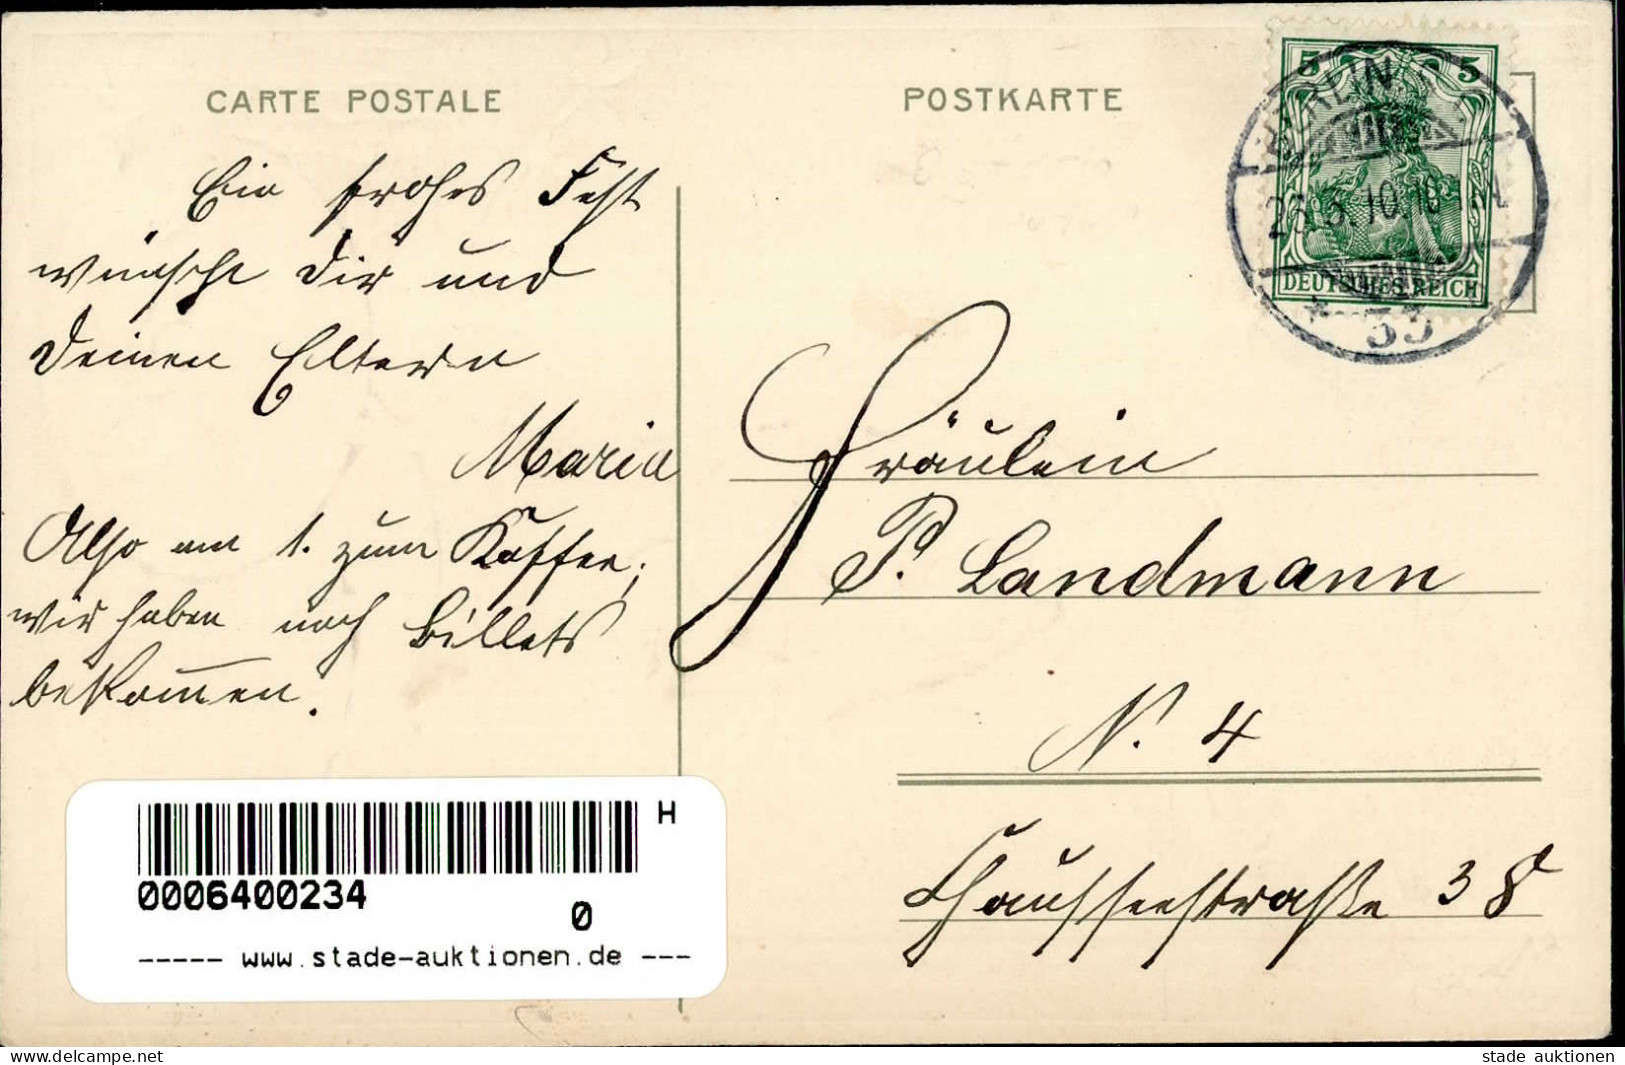 CARTE POSTALE
POSTKARTE
Ein frohes Fest
wünscht Dir und
Deinen Eltern
Maria
Also am 1. zum Kaffee;
wir haben noch Billets
bekommen.
5 5
BERLIN
10.10
DEUTSCHES REICH
* 33
Fräulein
P. Landmann
N. 4
Chausseestraße 38
H
0006400234
0
----- www.stade-auktionen.de ---
www.delcampe.net
stade auktionen